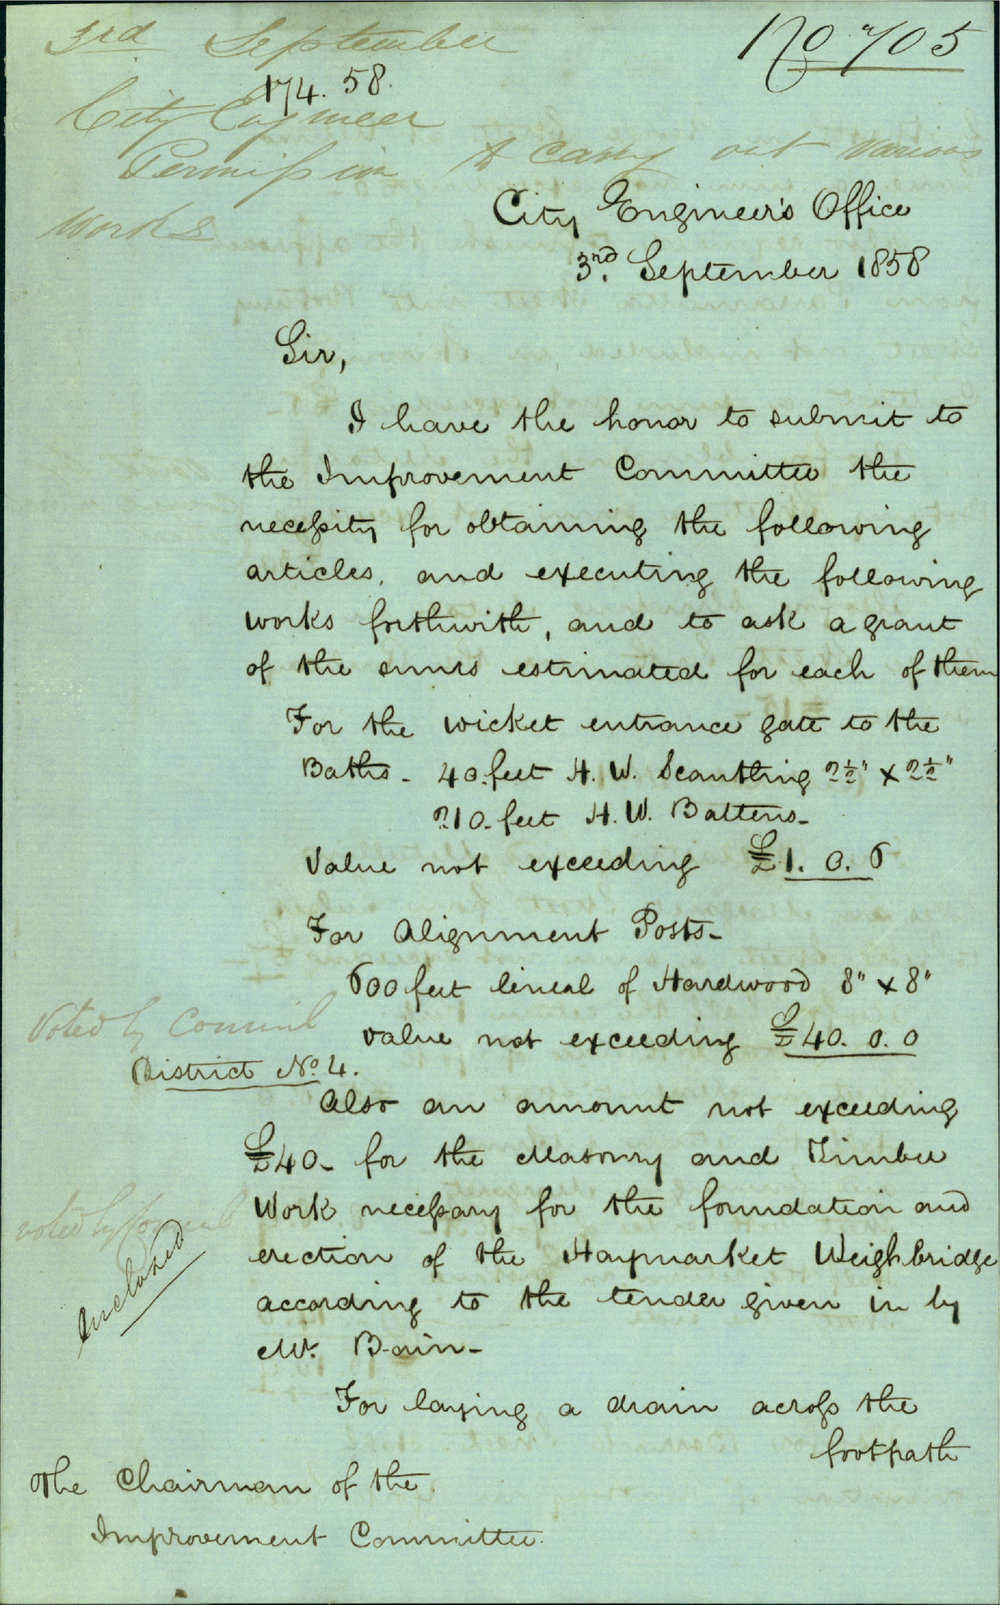 3rd September
No 705
174. 58.
City Engineer
Permission to carry out various
works
City Engineer's Office
3rd. September 1858
Sir,
I have the honor to submit to
the Improvement Committee the
necessity for obtaining the following
articles, and executing the following
works forthwith, and to ask a grant
of the sums estimated for each of them
For the wicket entrance gate to the
Baths - 40 feet H. W. Scantling 2½" x 2½"
210 feet H. W. Battens -
Value not exceeding £1. 0. 6
For Alignment Posts -
600 feet lineal of Hardwood 8" x 8"
Voted by Council
value not exceeding £40. 0. 0
District No. 4.
Also an amount not exceeding
£40 - for the Masonry and Timber
Work necessary for the foundation and
voted by Council
erection of the Haymarket Weighbridge
Enclosed
according to the tender given in by
Mr. Bain -
For laying a drain across the
footpath
The Chairman of the
Improvement Committee.